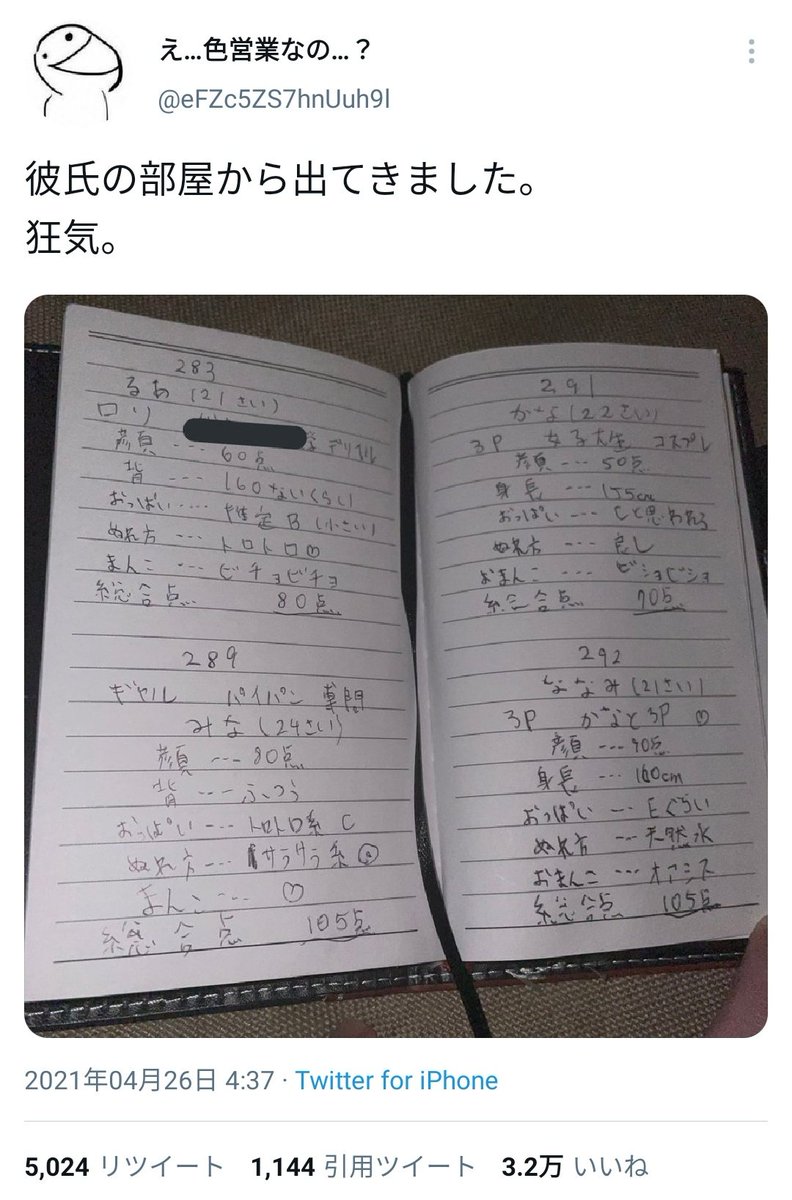 え…色営業なの…？
@eFZc5ZS7hnUuh9l
彼氏の部屋から出てきました。
狂気。
283
るあ (21さい)
ロリ デリヘル
顔 --- 60点
背 --- 160ないくらい
おっぱい ---- 推定B (小さい)
ぬれ方 --- トロトロ♡
まんこ --- ビチョビチョ
総合点 80点
289
ギャル パイパン 専門
みな (24さい)
顔 --- 80点
背 --- ふつう
おっぱい --- トロトロ系 C
ぬれ方 --- サラサラ系
まんこ --- ♡
総合点 105点
291
かな (22さい)
3P 女子大生 コスプレ
顔 --- 50点
身長 --- 155cm
おっぱい --- Cと思われる
ぬれ方 --- 良し
おまんこ --- ビショビショ
総合点 70点
292
ななみ (21さい)
3P かなと3P ♡
顔 --- 90点
身長 --- 160cm
おっぱい --- Eぐらい
ぬれ方 --- 天然水
おまんこ --- オアシス
総合点 105点
2021年04月26日 4:37 · Twitter for iPhone
5,024 リツイート 1,144 引用ツイート 3.2万 いいね